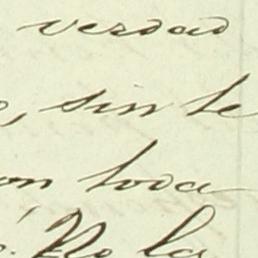 verdad
, sin te
on toda
. No las